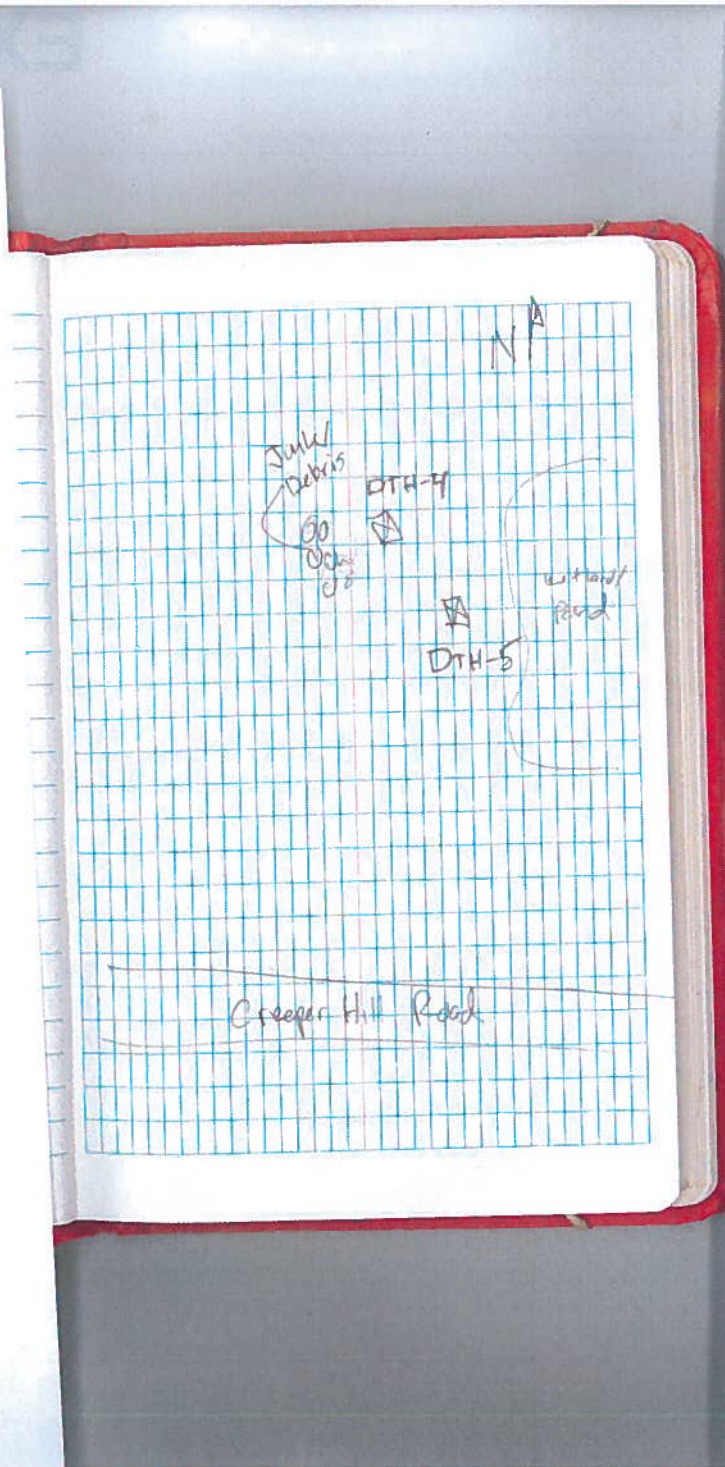 N
Junk/
Debris
DTH-4
wetland/
Pond
DTH-5
Creeper Hill Road